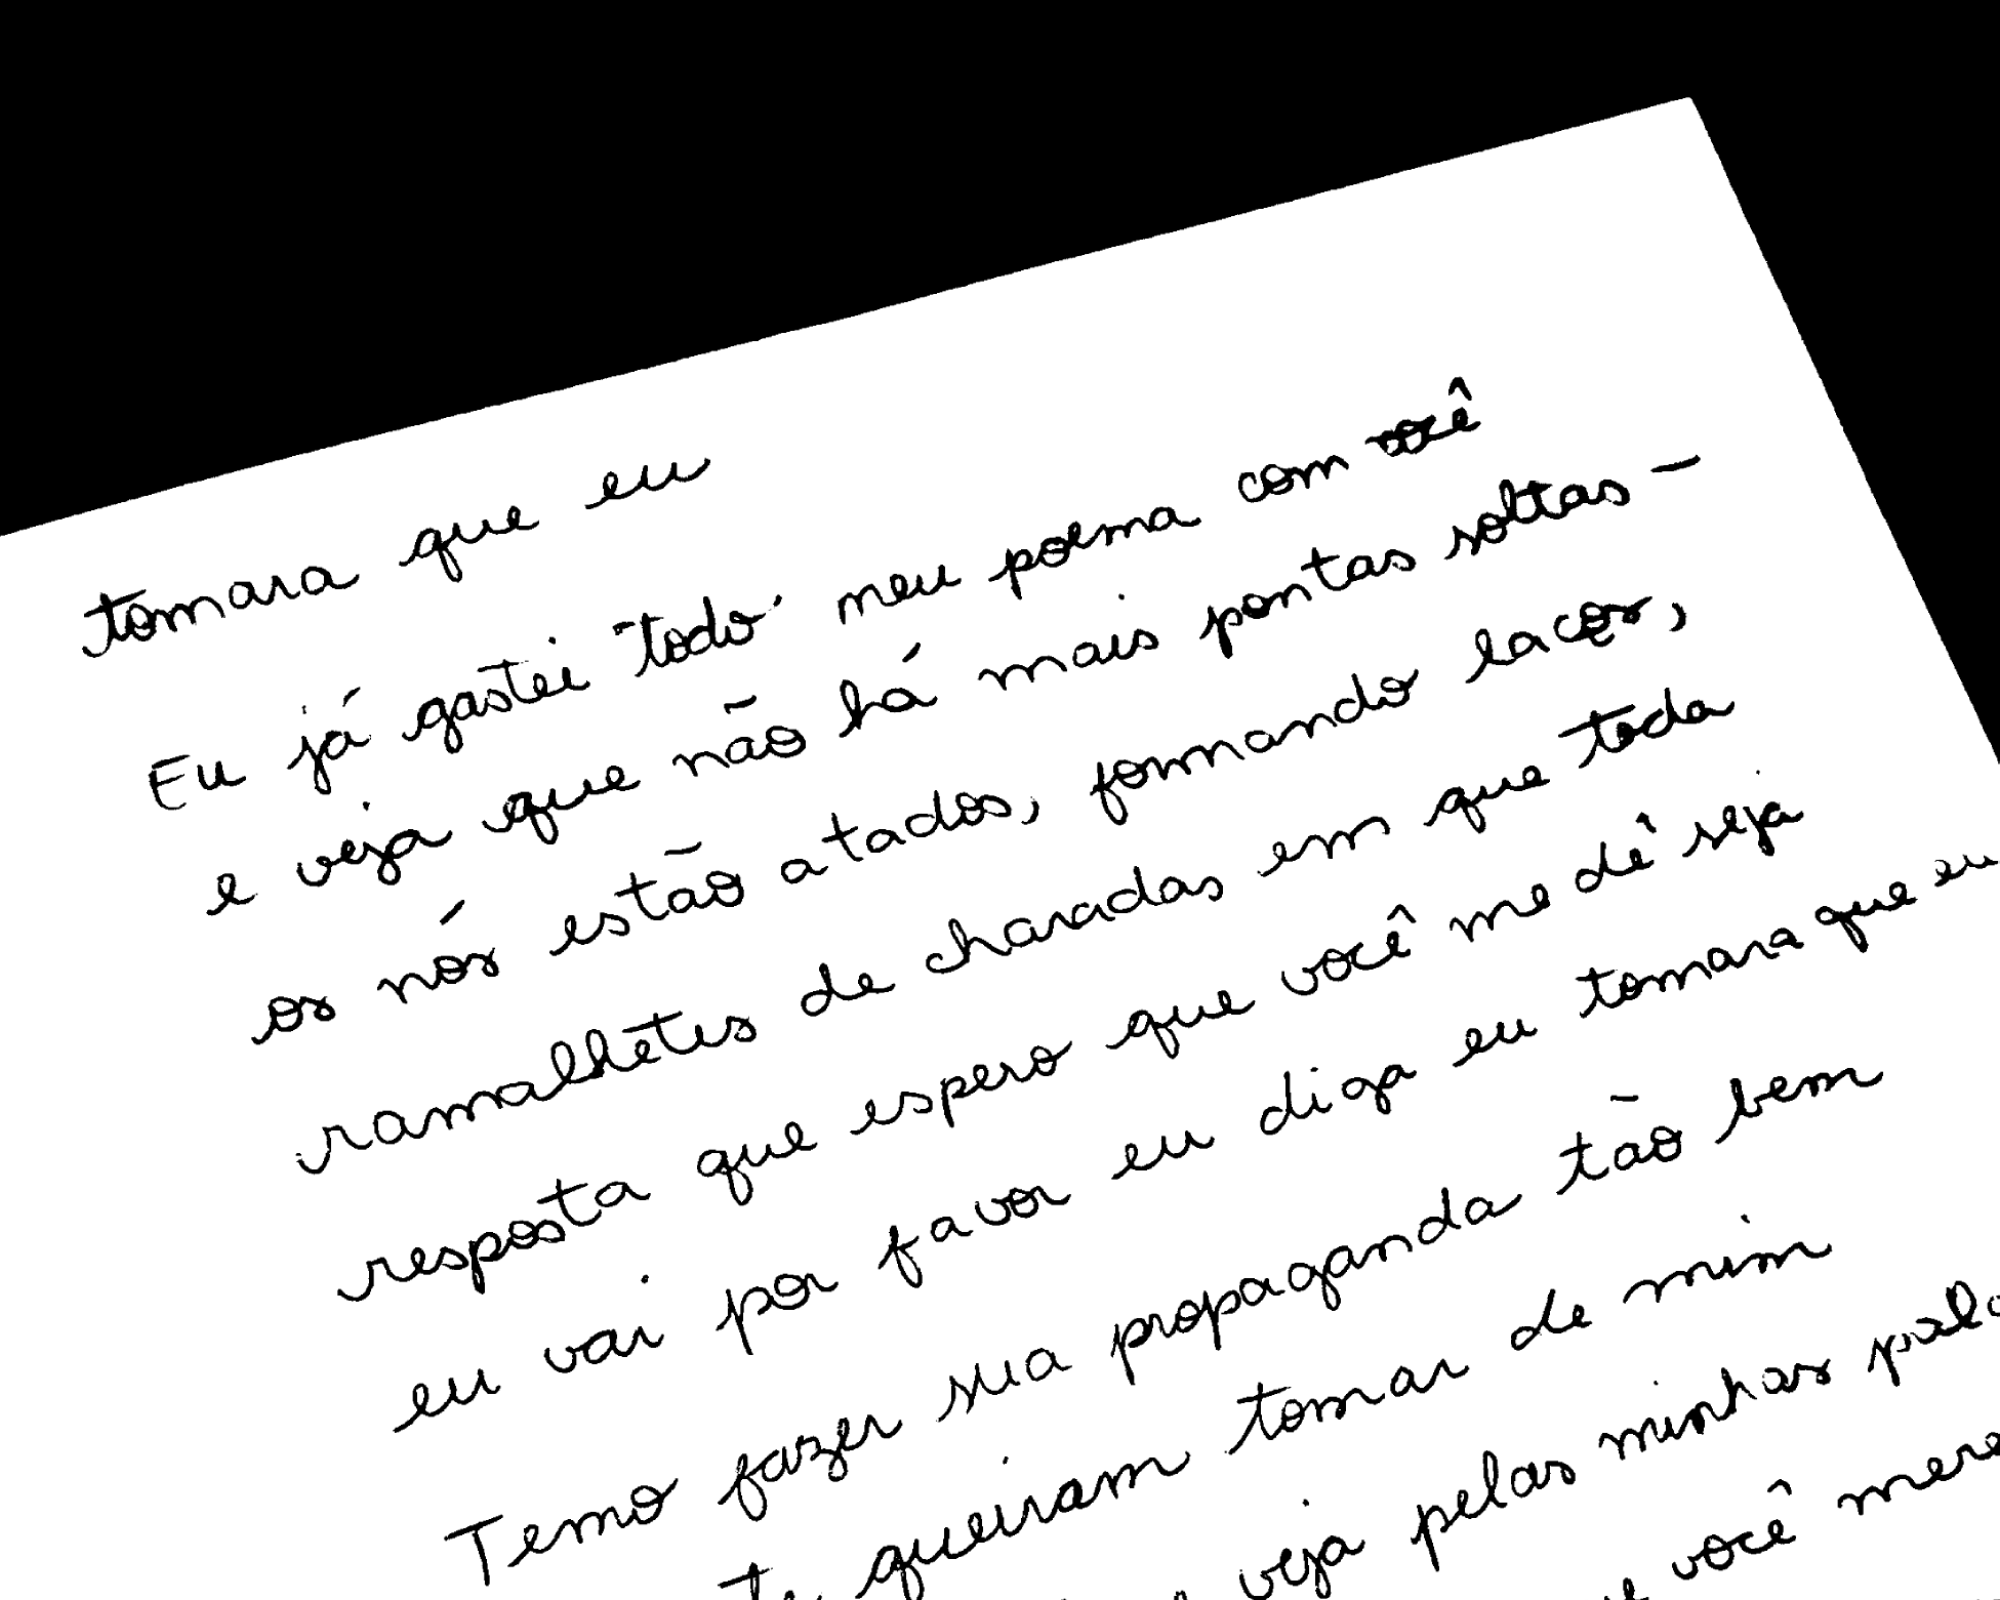 tomara que eu
Eu já gastei todo meu poema com você
e veja que não há mais pontas soltas –
os nós estão atados, formando laços,
ramalhetes de charadas em que toda
resposta que espero que você me dê seja
eu vai por favor eu diga eu tomara que eu
Temo fazer sua propaganda tão bem
te queiram tomar de mim
veja pelas minhas
você